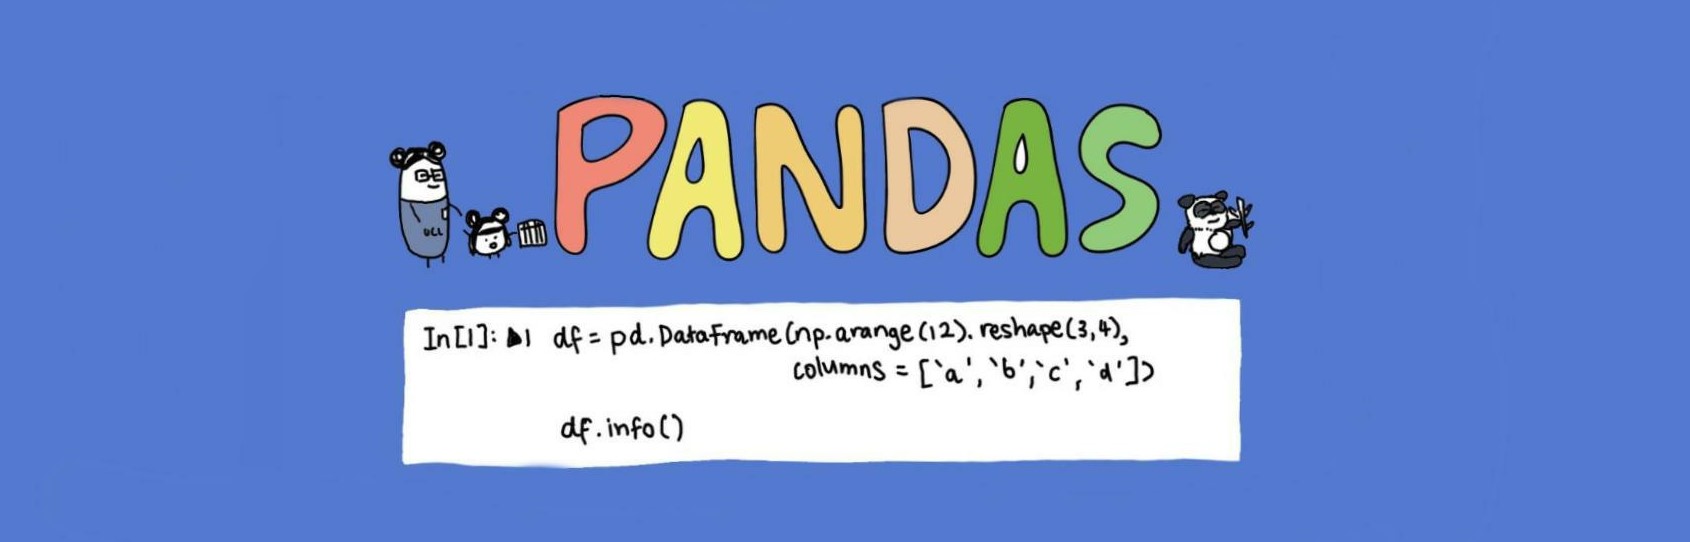 PANDAS
UCL
In[1]: df = pd.DataFrame(np.arange(12).reshape(3,4),
columns = [`a', `b', `c', `d'])
df.info()